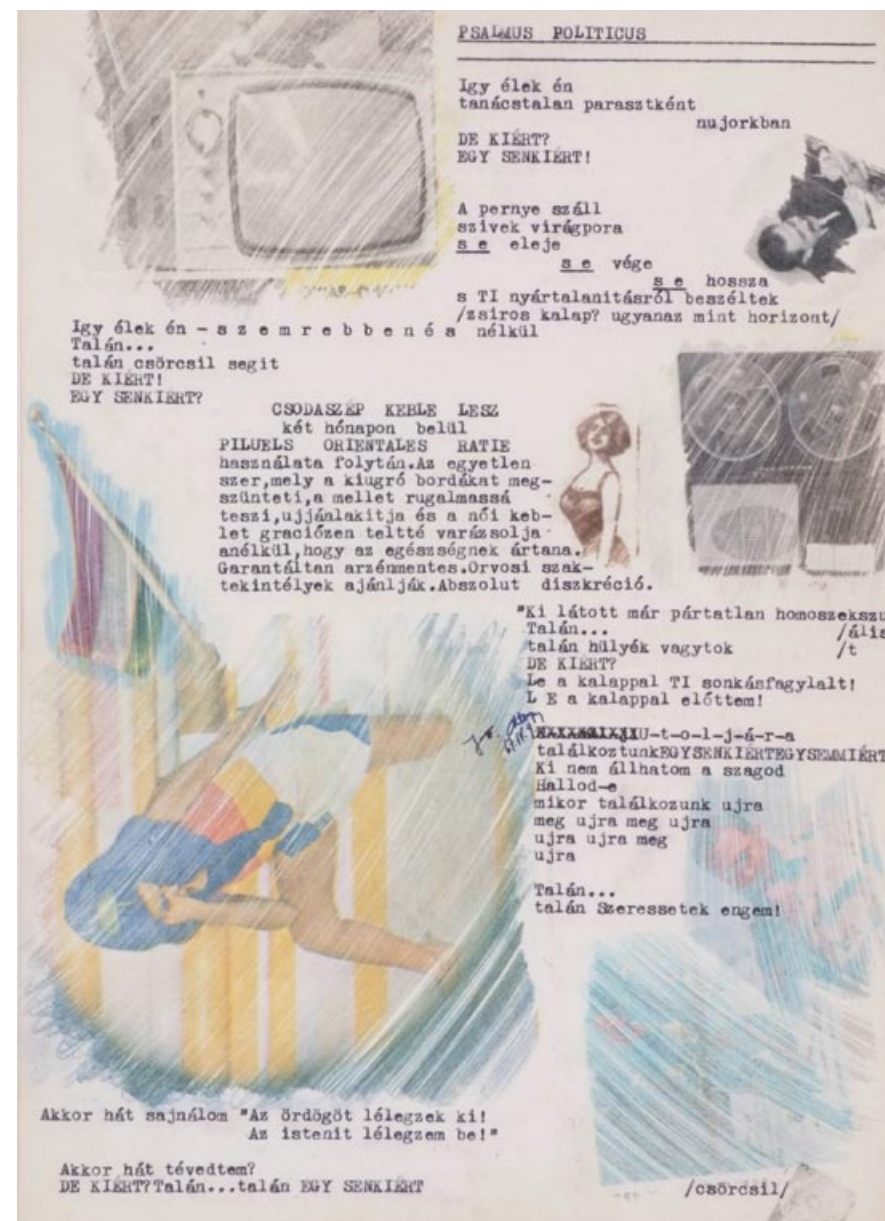 PSALMUS POLITICUS
Igy élek én
tanácstalan parasztként
nujorkban
DE KIÉRT?
EGY SENKIÉRT!
A pernye száll
szivek virágpora
s e eleje
s e vége
s e hossza
s TI nyártalanitásról beszéltek
/zsiros kalap? ugyanaz mint horizont/
Igy élek én - s z e m r e b b e n é s nélkül
Talán...
talán csörcsil segit
DE KIÉRT!
EGY SENKIÉRT?
CSODASZÉP KEBLE LESZ
két hónapon belül
PILUELS ORIENTALES RATIE
használata folytán.Az egyetlen
szer,mely a kiugró bordákat meg-
szünteti,a mellet rugalmassá
teszi,ujjánlakitja és a női keb-
let graciózen teltté varázsolja
anélkül,hogy az egészségnek ártana.
Garantáltan arzénmentes.Orvosi szak-
tekintélyek ajánlják.Abszolut diszkréció.
"Ki látott már pártatlan homoszekszu
Talán... /ális
talán hülyék vagytok /t
DE KIÉRT?
Le a kalappal TI sonkásfagylalt!
L E a kalappal előttem!
U-t-o-l-j-á-r-a
találkoztunkEGYSENKIÉRTEGYSEMMIÉRT
Ki nem állhatom a szagod
Hallod-e
mikor találkozunk ujra
meg ujra meg ujra
ujra ujra meg
ujra
Talán...
talán Szeressetek engem!
Akkor hát sajnálom "Az ördögöt lélegzek ki!
Az istenit lélegzem be!"
Akkor hát tévedtem?
DE KIÉRT?Talán...talán EGY SENKIÉRT
/csörcsil/